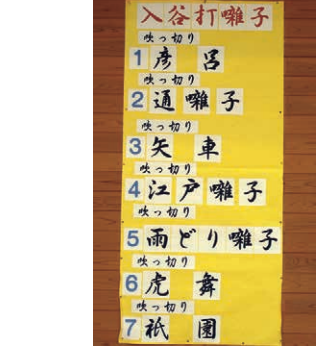 入谷打囃子
吹っ切り
1 彦呂
吹っ切り
2 通囃子
吹っ切り
3 矢車
吹っ切り
4 江戸囃子
吹っ切り
5 雨どり囃子
吹っ切り
6 虎舞
吹っ切り
7 祇園